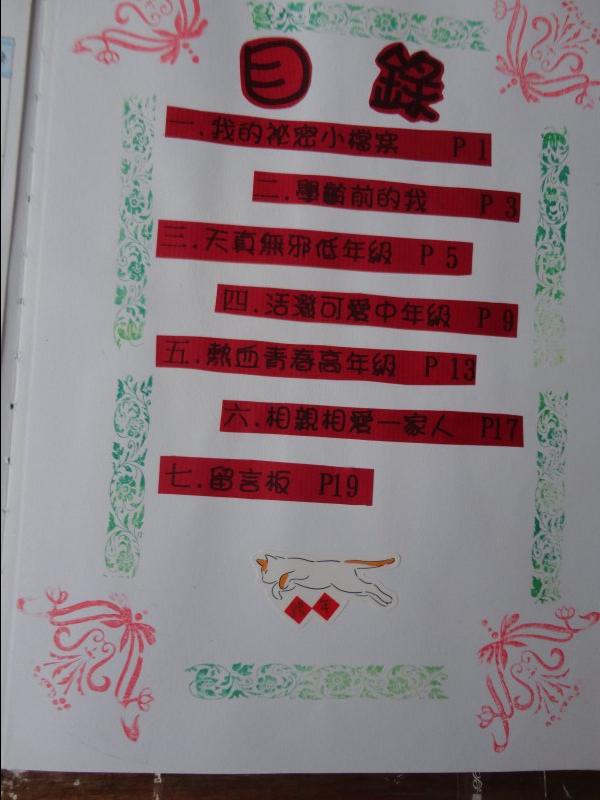 目錄
一.我的祕密小檔案 P 1
二.學齡前的我 P 3
三.天真無邪低年級 P 5
四.活潑可愛中年級 P 9
五.熱血青春高年級 P 13
六.相親相愛一家人 P17
七.留言板 P19